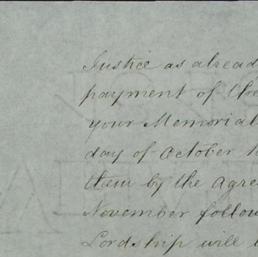 Justice as alread
payment of
your Memorial
day of October
them by the Agre
November follow
Lordship will